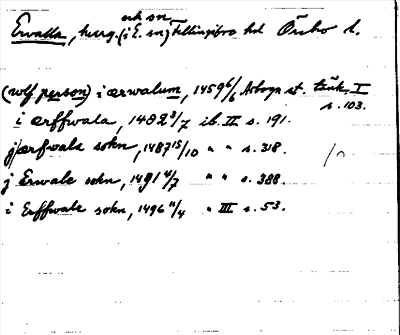 ock sn
Ervalla, herrg. (i E. sn) Fellingsbro hd Örebro l.
(wlf person) i ærwalum, 1459 6/6 Arboga st. tänk. I
s. 103.
i ærffwala, 1482 3/7 ib. II s. 191.
j ærfwala sokn, 1487 15/10 " " s. 318.
j Erwale sokn, 1491 4/7 " " s. 388.
i Erffwale sokn, 1496 11/4 " III s. 53.